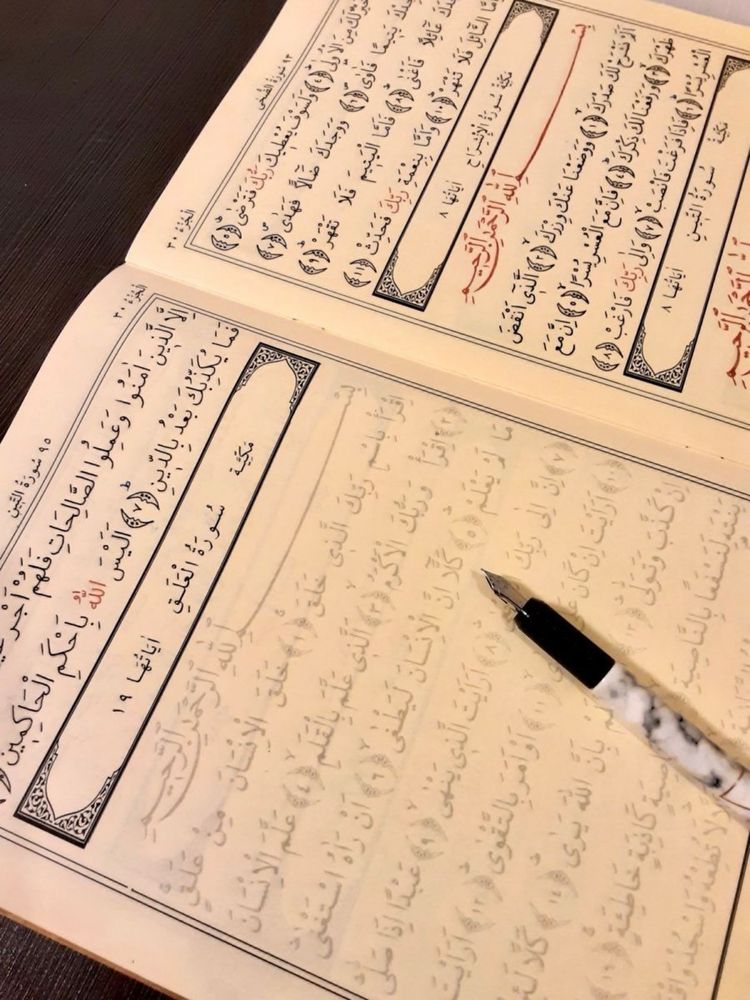 ٩٣ سُورَةُ الضُّحٰى
اَلْجُزْءُ ٣٠
لَكَ مِنَ الْاُولٰى ﴿٤﴾ وَلَسَوْفَ يُعْطِيكَ رَبُّكَ فَتَرْضٰى ﴿٥﴾
يَتِيمًا فَاٰوٰى ﴿٦﴾ وَوَجَدَكَ ضَالًّا فَهَدٰى ﴿٧﴾
عَائِلًا فَاَغْنٰى ﴿٨﴾ فَاَمَّا الْيَتِيمَ فَلَا تَقْهَرْ ﴿٩﴾
السَّائِلَ فَلَا تَنْهَرْ ﴿١٠﴾ وَاَمَّا بِنِعْمَةِ رَبِّكَ فَحَدِّثْ ﴿١١﴾
مَكِّيَّة سُورَةُ الْاِنْشِرَاحِ اٰيَاتُهَا ٨
بِسْمِ اللهِ الرَّحْمٰنِ الرَّحِيمِ
اَلَمْ نَشْرَحْ لَكَ صَدْرَكَ ﴿١﴾ وَوَضَعْنَا عَنْكَ وِزْرَكَ ﴿٢﴾ اَلَّذِى اَنْقَضَ
ظَهْرَكَ ﴿٣﴾ وَرَفَعْنَا لَكَ ذِكْرَكَ ﴿٤﴾ فَاِنَّ مَعَ الْعُسْرِ يُسْرًا ﴿٥﴾ اِنَّ مَعَ
الْعُسْرِ يُسْرًا ﴿٦﴾ فَاِذَا فَرَغْتَ فَانْصَبْ ﴿٧﴾ وَاِلٰى رَبِّكَ فَارْغَبْ ﴿٨﴾
مَكِّيَّة سُورَةُ التِّينِ اٰيَاتُهَا ٨
اللهِ الرَّحْمٰنِ الرَّحِيمِ
اَلْجُزْءُ ٣٠
٩٥ سُورَةُ التِّينِ
اِلَّا الَّذِينَ اٰمَنُوا وَعَمِلُوا الصَّالِحَاتِ فَلَهُمْ اَجْرٌ
فَمَا يُكَذِّبُكَ بَعْدُ بِالدِّينِ ﴿٧﴾ اَلَيْسَ اللهُ بِاَحْكَمِ الْحَاكِمِينَ
مَكِّيَّة سُورَةُ الْعَلَقِ اٰيَاتُهَا ١٩
بِسْمِ اللهِ الرَّحْمٰنِ الرَّحِيمِ
اِقْرَأْ بِاسْمِ رَبِّكَ الَّذِى خَلَقَ ﴿١﴾ خَلَقَ الْاِنْسَانَ مِنْ عَلَقٍ
﴿٢﴾ اِقْرَأْ وَرَبُّكَ الْاَكْرَمُ ﴿٣﴾ اَلَّذِى عَلَّمَ بِالْقَلَمِ ﴿٤﴾ عَلَّمَ الْاِنْسَانَ
مَا لَمْ يَعْلَمْ ﴿٥﴾ كَلَّا اِنَّ الْاِنْسَانَ لَيَطْغٰى ﴿٦﴾ اَنْ رَاٰهُ اسْتَغْنٰى
﴿٧﴾ اِنَّ اِلٰى رَبِّكَ ﴿٨﴾ اَرَاَيْتَ الَّذِى يَنْهٰى ﴿٩﴾ عَبْدًا اِذَا صَلّٰى
﴿١٠﴾ اَرَاَيْتَ اِنْ كَانَ ﴿١١﴾ اَوْ اَمَرَ بِالتَّقْوٰى ﴿١٢﴾ اَرَاَيْتَ
اِنْ كَذَّبَ وَتَوَلّٰى ﴿١٣﴾ بِاَنَّ اللهَ يَرٰى ﴿١٤﴾ كَلَّا لَئِنْ
يَنْتَهِ لَنَسْفَعًا بِالنَّاصِيَةِ كَاذِبَةٍ خَاطِئَةٍ ﴿١٦﴾
لَا تُطِعْهُ وَاسْجُدْ